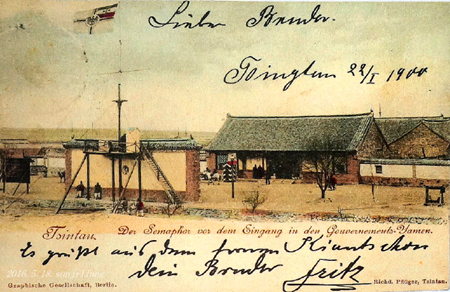 Lieber Bruder.
Tsingtau 22/I 1900
Tsintau. Der Semaphor vor dem Eingang in den Gouvernements-Yamen.
Es grüßt aus dem fernen Kiautschou
dein Bruder Fritz
2016.5.18
Graphische Gesellschaft, Berlin. Richd. Pflüger, Tsintau.